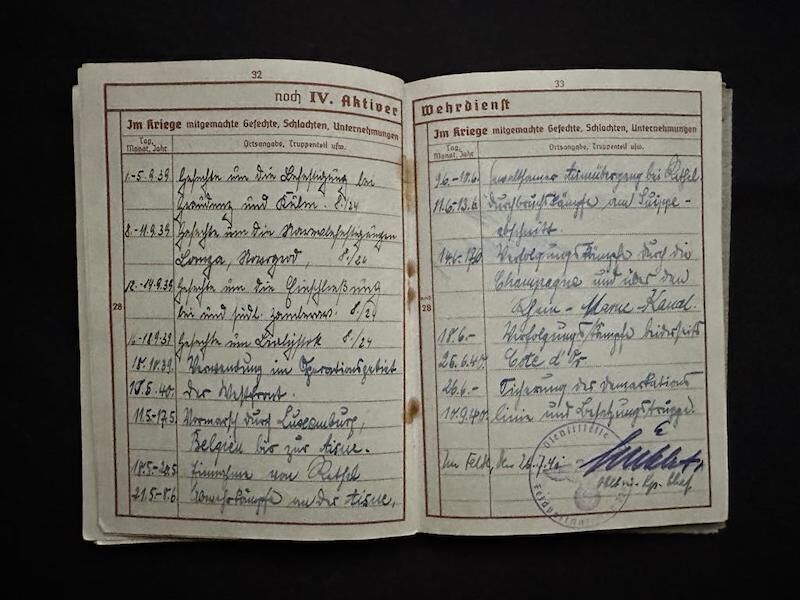 32
noch IV. Aktiver
Im Kriege mitgemachte Gefechte, Schlachten, Unternehmungen
Tag, Monat, Jahr
Ortsangabe, Truppenteil usw.
1.-5.9.39. Gefechte um die Befestigung bei
Graudenz und Kulm. 8./24
8.-11.9.39 Gefechte um die Narewbefestigungen
Lomza, Nowogrod, 8./24
12.-14.9.39 Gefechte um die Einschließung
bei und südl. 8./24
28
-18.9.39 Gefechte um Bialystok 8./24
18.10.39. Verwendung im Operationsgebiet
10.5.40. der Westfront.
11.5-17.5. Vormarsch durch Luxemburg,
Belgien bis zur Aisne.
18.5-20.5 Einnahme von Rethel
21.5-8.6 Abwehrkämpfe an der Aisne,
33
Wehrdienst
Im Kriege mitgemachte Gefechte, Schlachten, Unternehmungen
Tag, Monat, Jahr
Ortsangabe, Truppenteil usw.
9.6.-10.6. Gewaltsamer Aisneübergang bei Rethel.
11.6-13.6 Durchbruchskämpfe am Suippe-
abschnitt.
14.6-17.6 Verfolgungskämpfe durch die
Champagne und über den
28
Rhein-Marne-Kanal
18.6.- Verfolgungskämpfe beiderseits
25.6.40. Cote d'Or
26.6.- Sicherung der Demarkations
linie und Besatzungstruppe.
Im Felde, den 26.7.41
Dienststelle
Oblt. u. Kp. Chef
Feldpostnummer